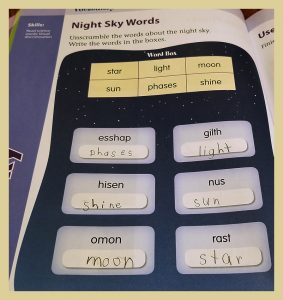 Skills:
Night Sky Words
Unscramble the words about the night sky.
Write the words in the boxes.
Word Box
star light moon
sun phases shine
esshap gilth
phases light
hisen nus
shine sun
omon rast
moon star